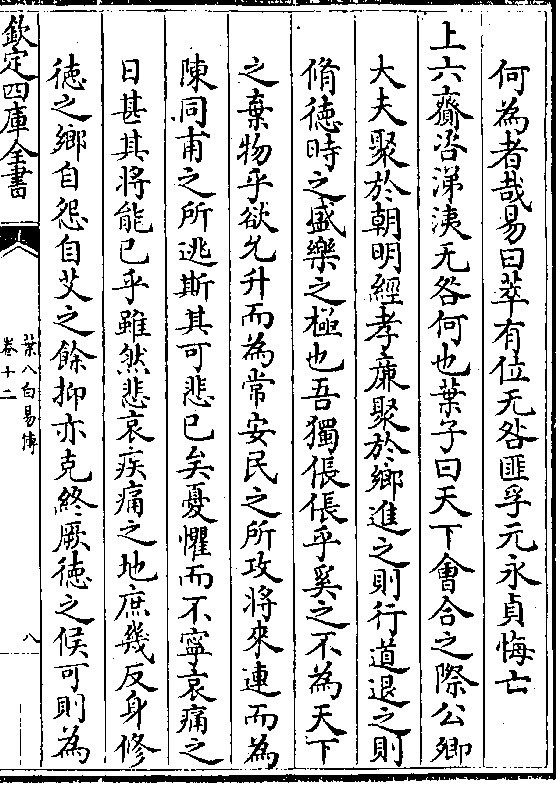 何為者哉易曰萃有位无咎匪孚元永貞悔亡
上六齎咨涕洟无咎何也葉子曰天下會合之際公卿
大夫聚於朝明經孝亷聚於鄉進之則行道退之則
脩徳時之盛樂之極也吾獨倀倀乎奚之不為天下
之棄物乎欲允升而為常安民之所攻將來連而為
陳同甫之所逃斯其可悲已矣憂懼而不寧哀痛之
日甚其將能已乎雖然悲哀疾痛之地庶幾反身修
徳之鄉自怨自艾之餘抑亦克終厥徳之候可則為
欽定四庫全書
葉八白易傳
卷十二
八